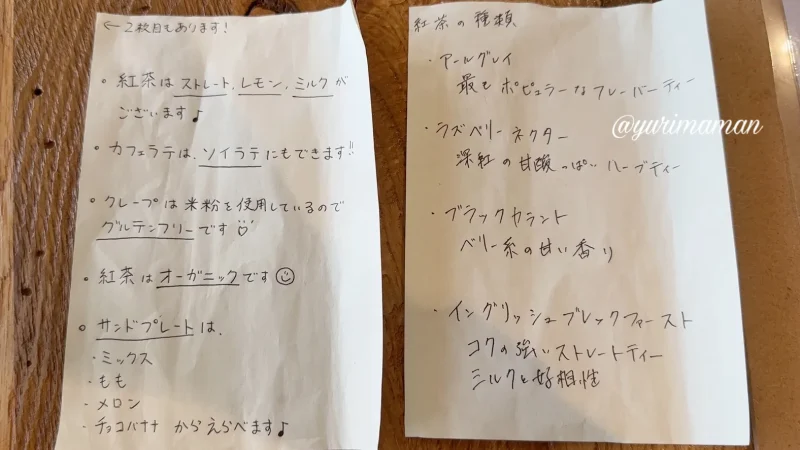 ←2枚目もあります!
・紅茶はストレート、レモン、ミルクが
ございます♪
・カフェラテは、ソイラテにもできます!!
・クレープは米粉を使用しているので
グルテンフリーです
・紅茶はオーガニックです☺
○サンドプレートは、
・ミックス
・もも
・メロン
・チョコバナナ からえらべます♪
紅茶の種類
・アールグレイ
最もポピュラーなフレーバーティー
・ラズベリーネクター
深紅の甘酸っぱいハーブティー
@yurimaman
・ブラックカラント
ベリー系の甘い香り
・イングリッシュブレックファースト
コクの強いストレートティー
ミルクと好相性